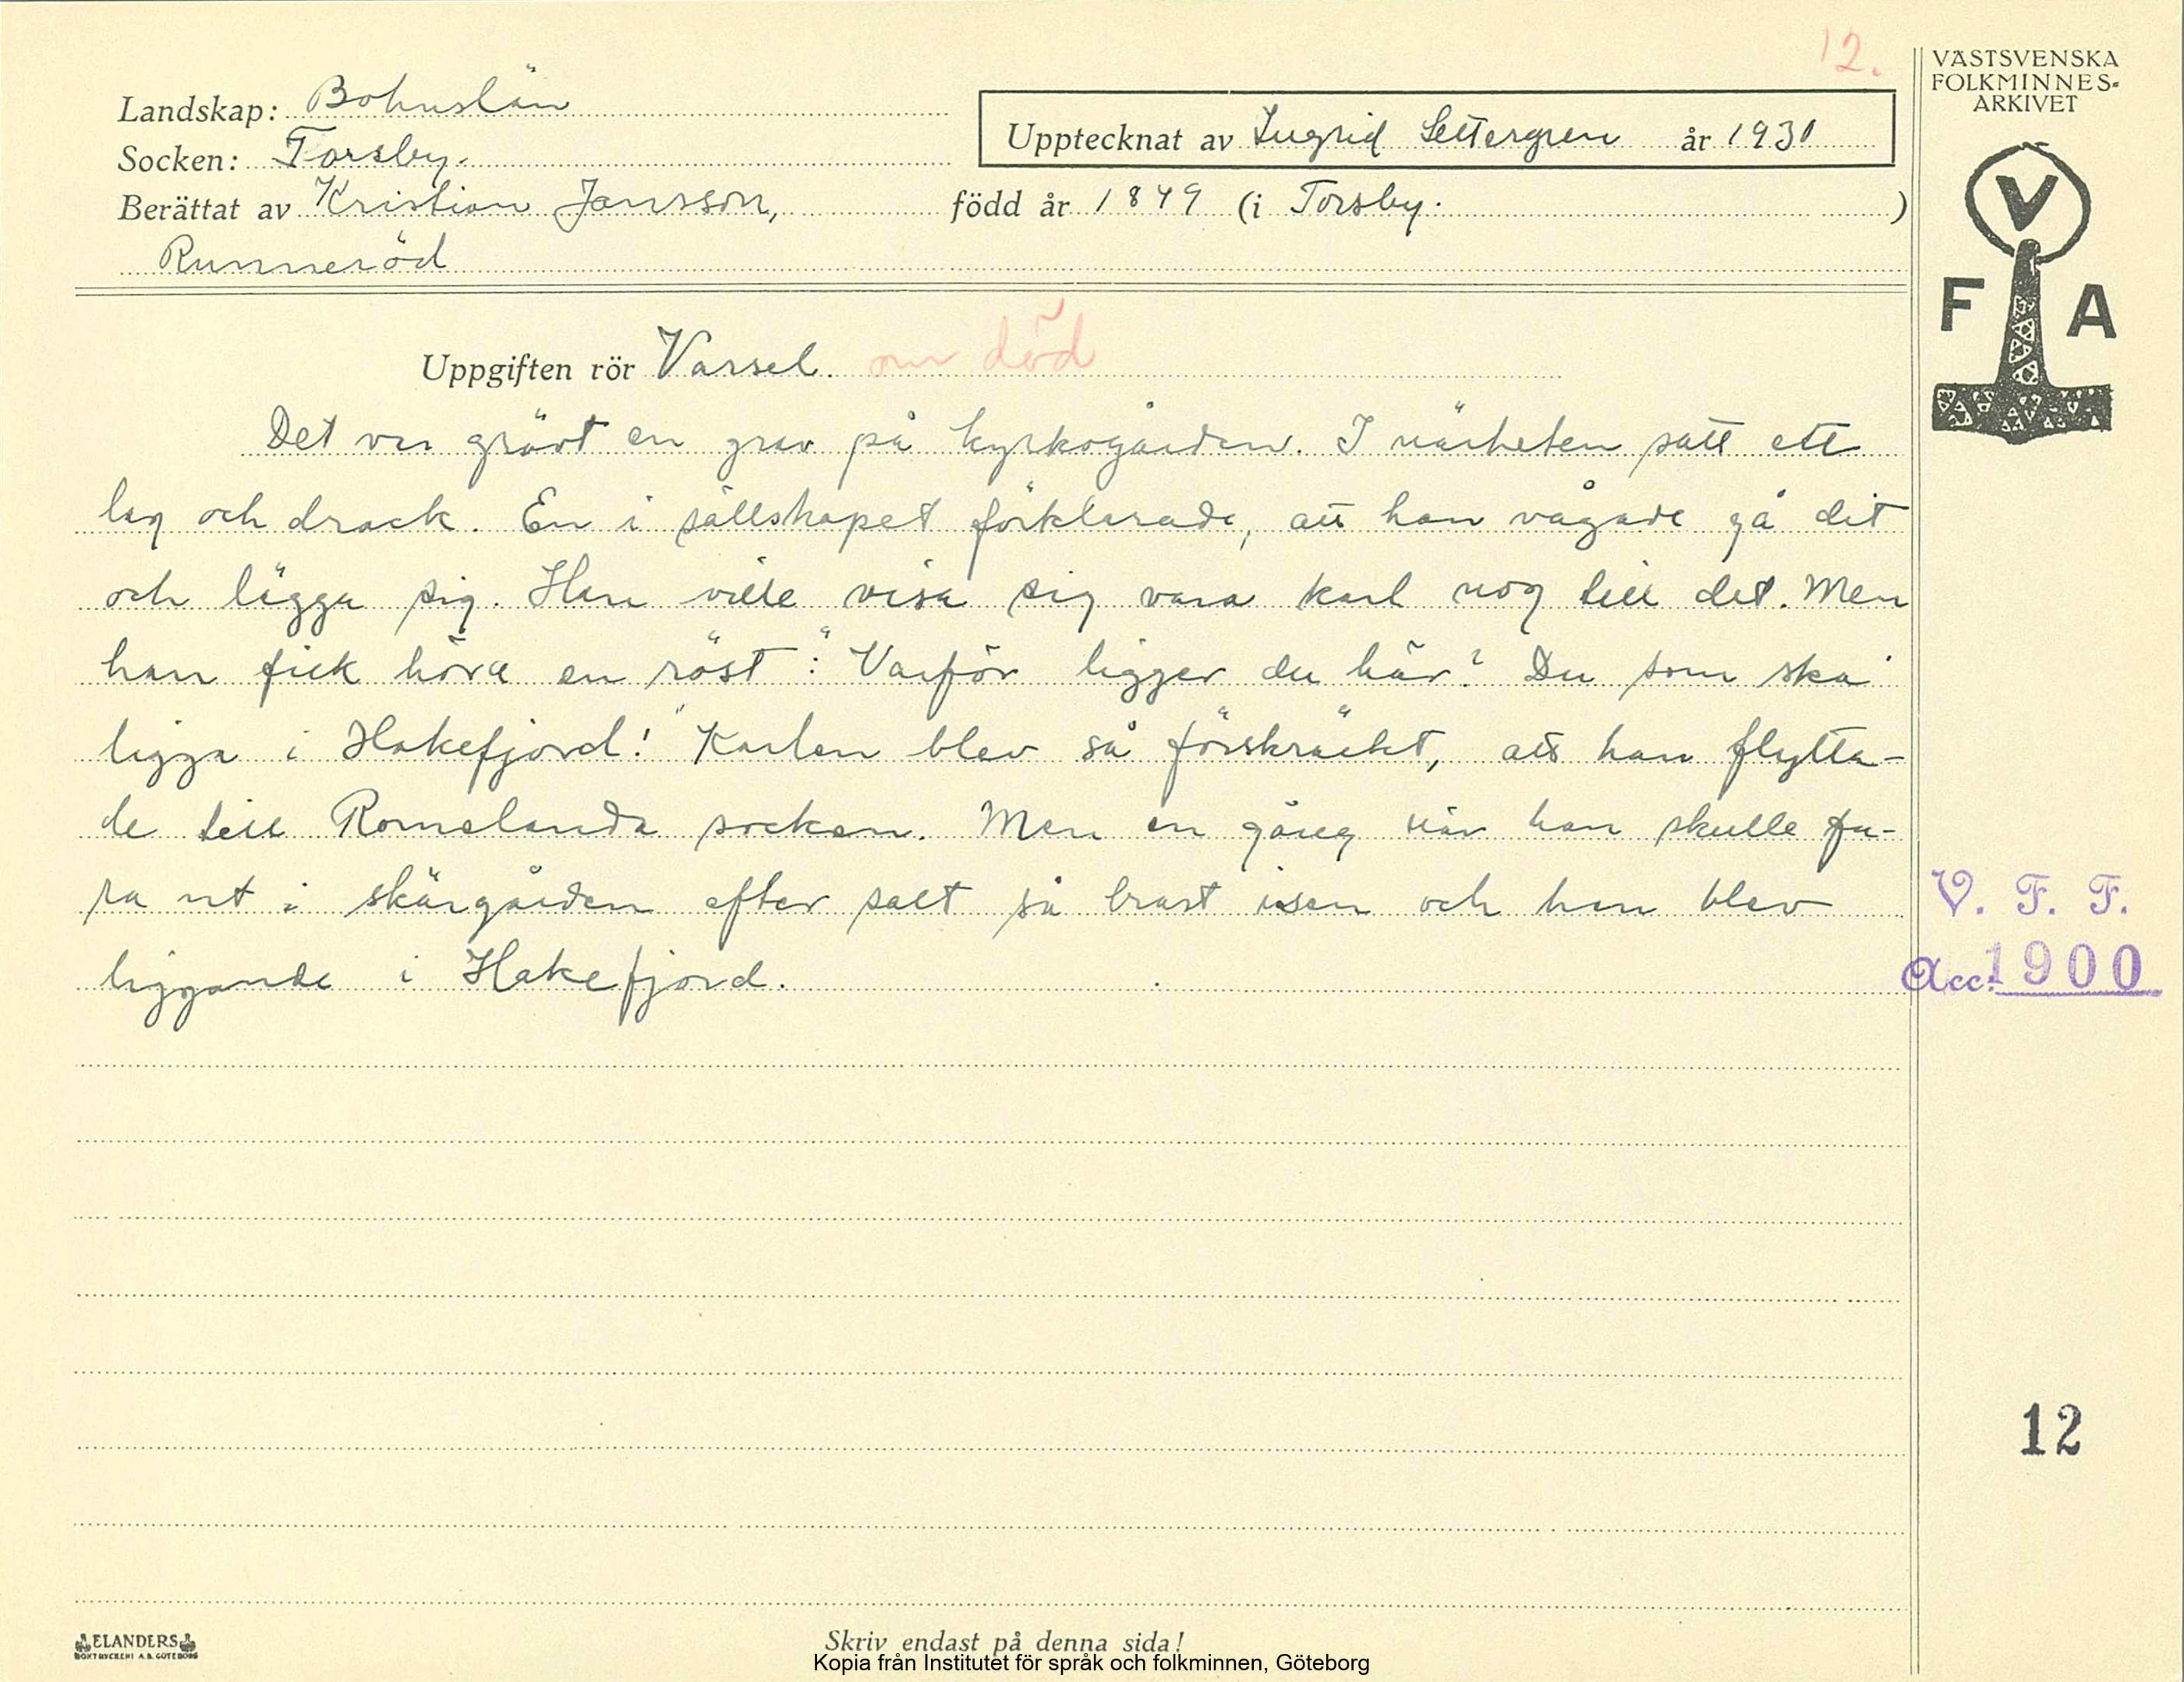 12.
VÄSTSVENSKA
FOLKMINNES-
ARKIVET
Landskap: Bohuslän
Upptecknat av Ingrid Settergren år 1930
Socken: Torsby.
Berättat av Kristian Jansson, född år 1849 (i Torsby. )
Runneröd
V
F A
Uppgiften rör Varsel. om död
Det var grävt en grav på kyrkogården. I närheten satt ett
lag och drack. En i sällskapet förklarade, att han vågade gå dit
och lägga sig. Han ville visa sig vara karl nog till det. Men
han fick höra en röst: "Varför ligger du här? Du som ska'
ligga i Hakefjord!" Karlen blev så förskräckt, att han flytta-
de till Romelanda socken. Men en gång när han skulle fa-
ra ut i skärgården efter salt så brast isen och han blev
liggande i Hakefjord.
V. F. F.
Acc. 1900
12
ELANDERS
BOKTRYCKERI A.B. GÖTEBORG
Skriv endast på denna sida!
Kopia från Institutet för språk och folkminnen, Göteborg